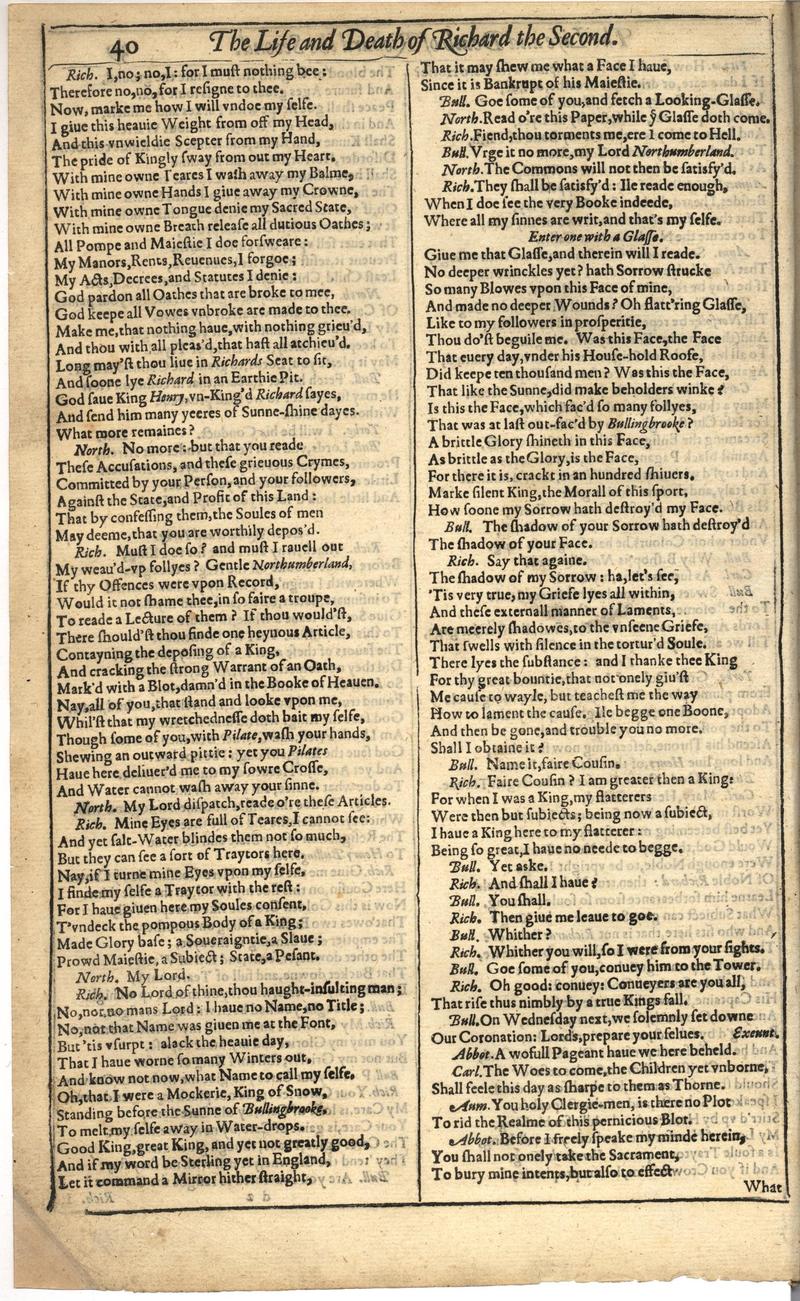 40
The Life and Death of Richard the Second.
Rich. I,no; no,I: for I muſt nothing bee:
Therefore no,no, for I reſigne to thee.
Now, marke me how I will vndoe my ſelfe.
I giue this heauie Weight from off my Head,
And this vnwieldie Scepter from my Hand,
The pride of Kingly ſway from out my Heart.
With mine owne Teares I waſh away my Balme,
With mine owne Hands I giue away my Crowne,
With mine owne Tongue denie my Sacred State,
With mine owne Breath releaſe all dutious Oathes;
All Pompe and Maieſtie I doe forſweare:
My Manors,Rents,Reuenues,I forgoe;
My Acts,Decrees,and Statutes I denie:
God pardon all Oathes that are broke to mee,
God keepe all Vowes vnbroke are made to thee.
Make me,that nothing haue,with nothing grieu'd,
And thou with all pleas'd,that haſt all atchieu'd.
Long may'ſt thou liue in Richards Seat to ſit,
And ſoone lye Richard in an Earthie Pit.
God ſaue King Henry,vn-King'd Richard ſayes,
And ſend him many yeeres of Sunne-ſhine dayes.
What more remaines?
North. No more: but that you reade
Theſe Accuſations, and theſe grieuous Crymes,
Committed by your Perſon,and your followers,
Againſt the State,and Profit of this Land:
That by confeſſing them,the Soules of men
May deeme,that you are worthily depos'd.
Rich. Muſt I doe ſo? and muſt I rauell out
My weau'd-vp follyes? Gentle Northumberland,
If thy Offences were vpon Record,
Would it not ſhame thee,in ſo faire a troupe,
To reade a Lecture of them? If thou would'ſt,
There ſhould'ſt thou finde one heynous Article,
Contayning the depoſing of a King,
And cracking the ſtrong Warrant of an Oath,
Mark'd with a Blot,damn'd in the Booke of Heauen.
Nay,all of you,that ſtand and looke vpon me,
Whil'ſt that my wretchedneſſe doth bait my ſelfe,
Though ſome of you,with Pilate,waſh your hands,
Shewing an outward pittie: yet you Pilates
Haue here deliuer'd me to my ſowre Croſſe,
And Water cannot waſh away your ſinne.
North. My Lord diſpatch,reade o're theſe Articles.
Rich. Mine Eyes are full of Teares,I cannot ſee:
And yet ſalt-Water blindes them not ſo much,
But they can ſee a ſort of Traytors here.
Nay,if I turne mine Eyes vpon my ſelfe,
I finde my ſelfe a Traytor with the reſt:
For I haue giuen here my Soules conſent,
T'vndeck the pompous Body of a King;
Made Glory baſe; a Soueraigntie,a Slaue;
Prowd Maieſtie,a Subiect; State,a Peſant.
North. My Lord.
Rich. No Lord of thine,thou haught-inſulting man;
No,nor no mans Lord: I haue no Name,no Title;
No,not that Name was giuen me at the Font,
But 'tis vſurpt: alack the heauie day,
That I haue worne ſo many Winters out,
And know not now,what Name to call my ſelfe.
Oh,that I were a Mockerie, King of Snow,
Standing before the Sunne of Bullingbrooke,
To melt my ſelfe away in Water-drops.
Good King,great King, and yet not greatly good,
And if my word be Sterling yet in England,
Let it command a Mirror hither ſtraight,
That it may ſhew me what a Face I haue,
Since it is Bankrupt of his Maieſtie.
Bull. Goe ſome of you,and fetch a Looking-Glaſſe.
North.Read o're this Paper,while yͤ Glaſſe doth come.
Rich.Fiend,thou torments me,ere I come to Hell.
Bull.Vrge it no more,my Lord Northumberland.
North.The Commons will not then be ſatisfy'd.
Rich.They ſhall be ſatisfy'd: Ile reade enough,
When I doe ſee the very Booke indeede,
Where all my ſinnes are writ,and that's my ſelfe.
Enter one with a Glaſſe.
Giue me that Glaſſe,and therein will I reade.
No deeper wrinckles yet? hath Sorrow ſtrucke
So many Blowes vpon this Face of mine,
And made no deeper Wounds? Oh flatt'ring Glaſſe,
Like to my followers in proſperitie,
Thou do'ſt beguile me. Was this Face,the Face
That euery day,vnder his Houſe-hold Roofe,
Did keepe ten thouſand men? Was this the Face,
That like the Sunne,did make beholders winke?
Is this the Face,which fac'd ſo many follyes,
That was at laſt out-fac'd by Bullingbrooke?
A brittle Glory ſhineth in this Face,
As brittle as the Glory,is the Face,
For there it is, crackt in an hundred ſhiuers.
Marke ſilent King,the Morall of this ſport,
How ſoone my Sorrow hath deſtroy'd my Face.
Bull. The ſhadow of your Sorrow hath deſtroy'd
The ſhadow of your Face.
Rich. Say that againe.
The ſhadow of my Sorrow: ha,let's ſee,
'Tis very true, my Griefe lyes all within,
And theſe externall manner of Laments,
Are meerely ſhadowes,to the vnſeene Griefe,
That ſwells with ſilence in the tortur'd Soule.
There lyes the ſubſtance: and I thanke thee King
For thy great bountie,that not onely giu'ſt
Me cauſe to wayle, but teacheſt me the way
How to lament the cauſe. Ile begge one Boone,
And then be gone,and trouble you no more.
Shall I obtaine it?
Bull. Name it,faire Couſin.
Rich. Faire Couſin? I am greater then a King:
For when I was a King,my flatterers
Were then but ſubiects; being now a ſubiect,
I haue a King here to my flatterer:
Being ſo great,I haue no neede to begge.
Bull. Yet aske.
Rich. And ſhall I haue?
Bull. You ſhall.
Rich. Then giue me leaue to goe.
Bull. Whither?
Rich. Whither you will,ſo I were from your ſights.
Bull. Goe ſome of you,conuey him to the Tower.
Rich. Oh good: conuey: Conueyers are you all,
That riſe thus nimbly by a true Kings fall.
Bull.On Wedneſday next,we ſolemnly ſet downe
Our Coronation: Lords,prepare your ſelues. Exeunt.
Abbot.A wofull Pageant haue we here beheld.
Carl.The Woes to come,the Children yet vnborne,
Shall feele this day as ſharpe to them as Thorne.
Aum.You holy Clergie-men, is there no Plot
To rid the Realme of this pernicious Blot.
Abbot. Before I freely ſpeake my minde herein,
You ſhall not onely take the Sacrament,
To bury mine intents,but alſo to effect
What